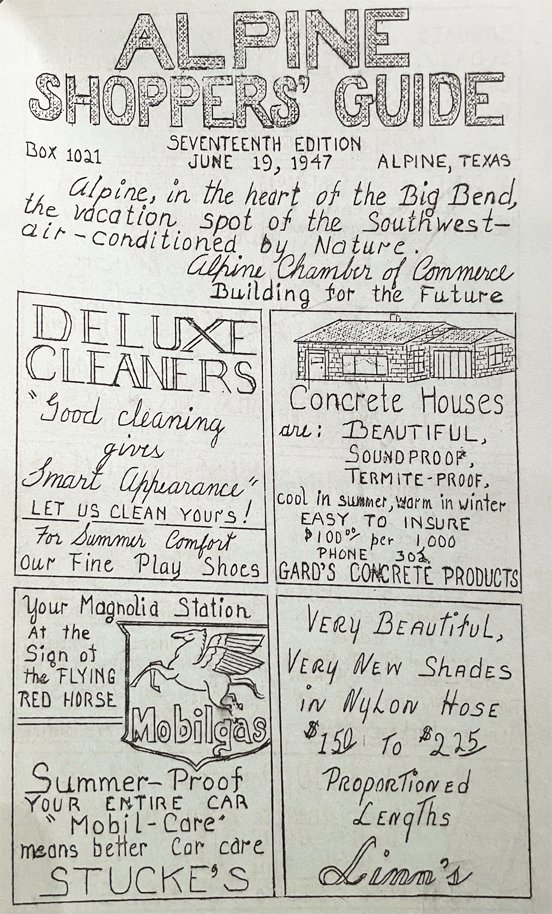 ALPINE
SHOPPERS' GUIDE
SEVENTEENTH EDITION
Box 1021 JUNE 19, 1947 ALPINE, TEXAS
Alpine, in the heart of the Big Bend,
the vacation spot of the Southwest—
air-conditioned by Nature.
Alpine Chamber of Commerce
Building for the Future
DELUXE
CLEANERS
"Good cleaning
gives
Smart Appearance"
LET US CLEAN YOURS!
For Summer Comfort
Our Fine Play Shoes
Concrete Houses
are: BEAUTIFUL,
SOUNDPROOF,
TERMITE-PROOF,
cool in summer, warm in winter
EASY TO INSURE
$100⁰⁰ per 1,000
PHONE 302
GARD'S CONCRETE PRODUCTS
Your Magnolia Station
At the
Sign of
the FLYING
RED HORSE
Mobilgas
Summer-Proof
YOUR ENTIRE CAR
"Mobil-Care"
means better Car care
STUCKE'S
VERY BEAUTIFUL,
VERY NEW SHADES
in NYLON HOSE
$1.50 TO $2.25
PROPORTIONED
LENGTHS
Linn's